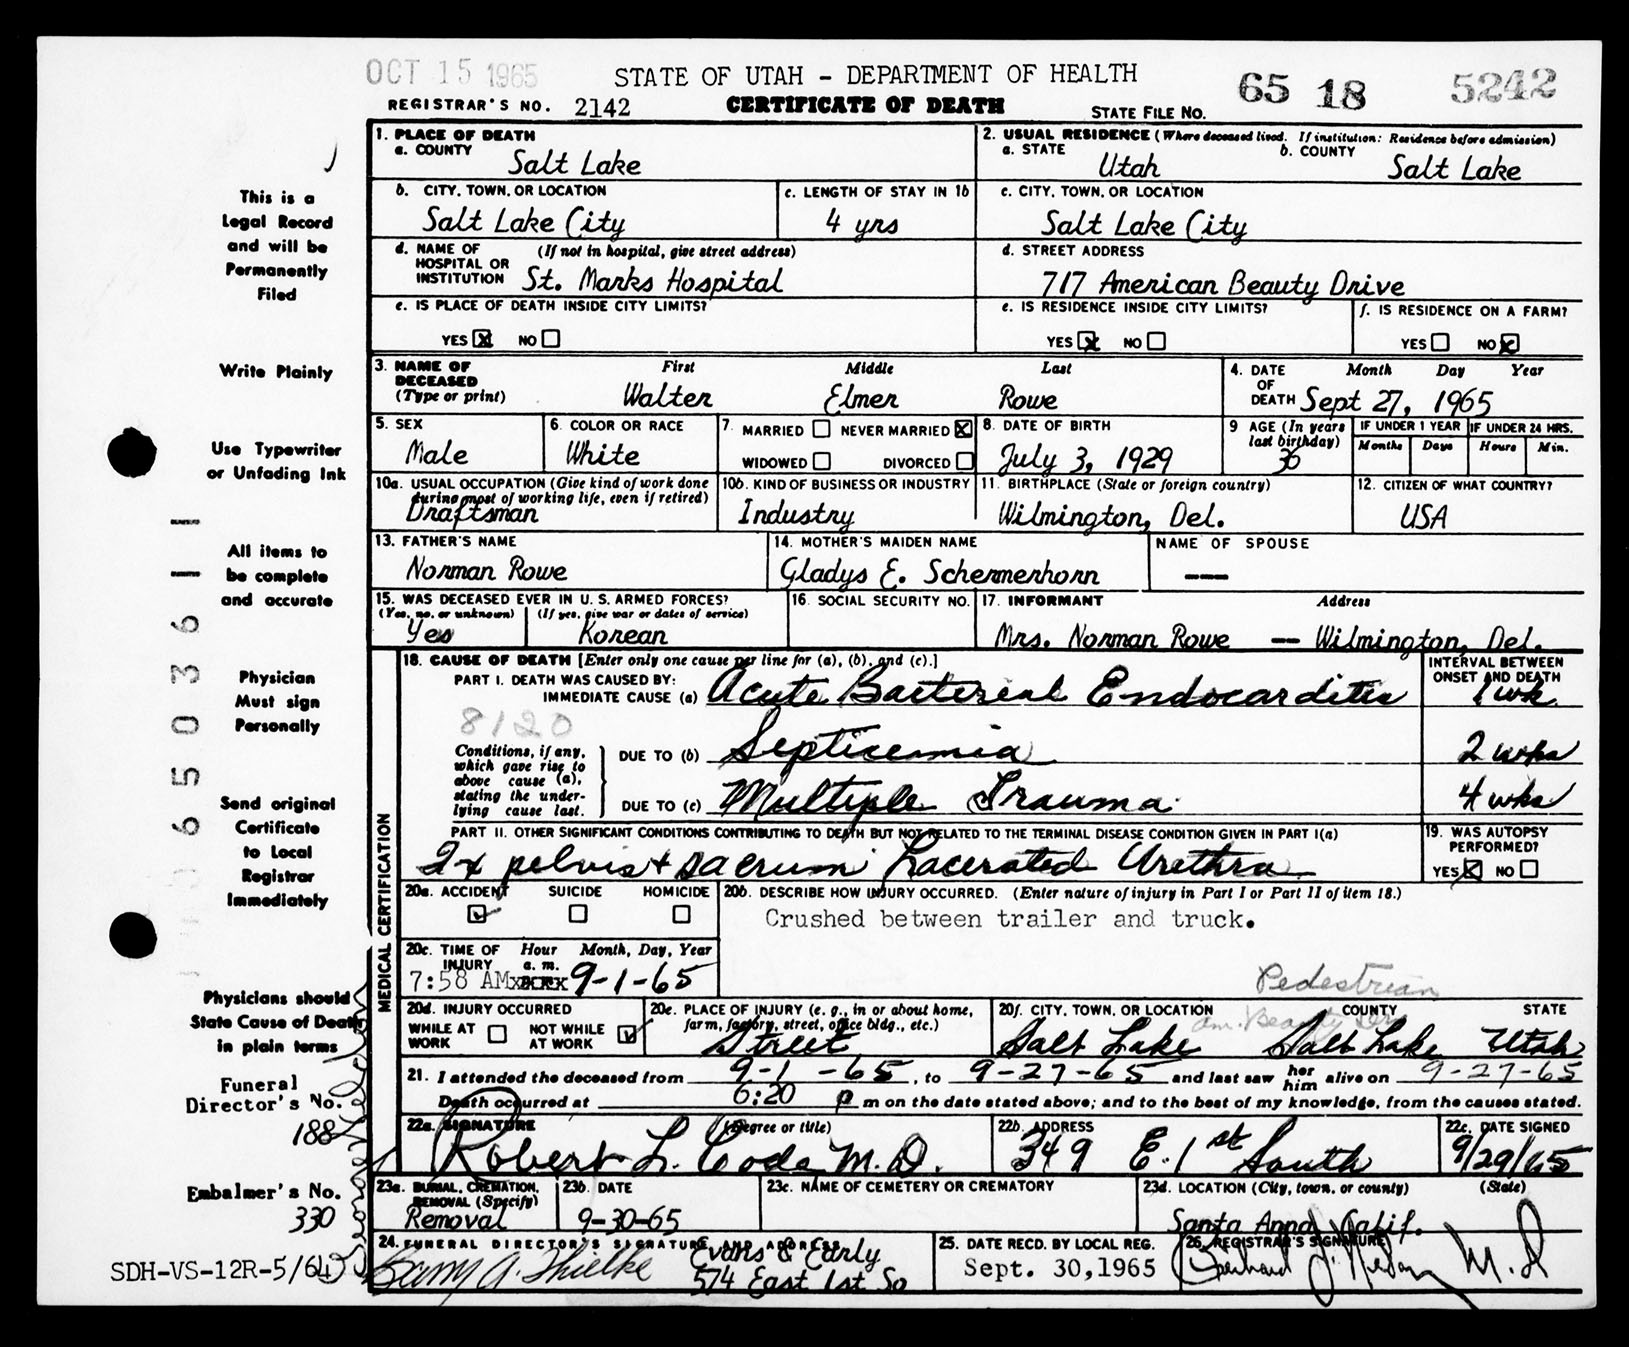 OCT 15 1965
STATE OF UTAH - DEPARTMENT OF HEALTH
65 18 5242
REGISTRAR'S NO. 2142 CERTIFICATE OF DEATH STATE FILE NO.
This is a
Legal Record
and will be
Permanently
Filed
Write Plainly
Use Typewriter
or Unfading Ink
All items to
be complete
and accurate
Physician
Must sign
Personally
Send original
Certificate
to Local
Registrar
Immediately
Physicians should
State Cause of Death
in plain terms
Funeral
Director's No.
188
Embalmer's No.
330
SDH-VS-12R-5/64
1. PLACE OF DEATH
a. COUNTY
Salt Lake
2. USUAL RESIDENCE (Where deceased lived. If institution: Residence before admission)
a. STATE Utah b. COUNTY Salt Lake
b. CITY, TOWN, OR LOCATION
Salt Lake City
c. LENGTH OF STAY IN 1b
4 yrs
c. CITY, TOWN, OR LOCATION
Salt Lake City
d. NAME OF (If not in hospital, give street address)
HOSPITAL OR
INSTITUTION St. Marks Hospital
d. STREET ADDRESS
717 American Beauty Drive
e. IS PLACE OF DEATH INSIDE CITY LIMITS?
YES X NO
e. IS RESIDENCE INSIDE CITY LIMITS?
YES X NO
f. IS RESIDENCE ON A FARM?
YES NO X
3. NAME OF First Middle Last
DECEASED
(Type or print) Walter Elmer Rowe
4. DATE Month Day Year
OF
DEATH Sept 27, 1965
5. SEX
Male
6. COLOR OR RACE
White
7. MARRIED NEVER MARRIED X
WIDOWED DIVORCED
8. DATE OF BIRTH
July 3, 1929
9 AGE (In years
last birthday)
36
IF UNDER 1 YEAR IF UNDER 24 HRS.
Months Days Hours Min.
10a. USUAL OCCUPATION (Give kind of work done
during most of working life, even if retired)
Draftsman
10b. KIND OF BUSINESS OR INDUSTRY
Industry
11. BIRTHPLACE (State or foreign country)
Wilmington, Del.
12. CITIZEN OF WHAT COUNTRY?
USA
13. FATHER'S NAME
Norman Rowe
14. MOTHER'S MAIDEN NAME
Gladys E. Schermerhorn
NAME OF SPOUSE
——
15. WAS DECEASED EVER IN U. S. ARMED FORCES?
(Yes, no, or unknown) (If yes, give war or dates of service)
Yes Korean
16. SOCIAL SECURITY NO.
17. INFORMANT Address
Mrs. Norman Rowe — Wilmington, Del.
MEDICAL CERTIFICATION
18. CAUSE OF DEATH [Enter only one cause per line for (a), (b), and (c).]
INTERVAL BETWEEN
ONSET AND DEATH
PART I. DEATH WAS CAUSED BY:
IMMEDIATE CAUSE (a) Acute Bacterial Endocarditis 1 wk
8120
Conditions, if any,
which gave rise to
above cause (a),
stating the under-
lying cause last.
DUE TO (b) Septicemia 2 wks
DUE TO (c) Multiple Trauma 4 wks
PART II. OTHER SIGNIFICANT CONDITIONS CONTRIBUTING TO DEATH BUT NOT RELATED TO THE TERMINAL DISEASE CONDITION GIVEN IN PART I(a)
pelvis + sacrum Lacerated Urethra
19. WAS AUTOPSY
PERFORMED?
YES X NO
20a. ACCIDENT SUICIDE HOMICIDE
20b. DESCRIBE HOW INJURY OCCURRED. (Enter nature of injury in Part I or Part II of item 18.)
Crushed between trailer and truck.
20c. TIME OF Hour Month, Day, Year
INJURY a. m.
7:58 AM 9-1-65
Pedestrian
20d. INJURY OCCURRED
WHILE AT WORK NOT WHILE AT WORK
20e. PLACE OF INJURY (e. g., in or about home,
farm, factory, street, office bldg., etc.)
Street
20f. CITY, TOWN, OR LOCATION COUNTY STATE
Am. Beauty Dr
Salt Lake Salt Lake Utah
21. I attended the deceased from 9-1-65, to 9-27-65 and last saw her him alive on 9-27-65
Death occurred at 6:20 p m on the date stated above; and to the best of my knowledge, from the causes stated.
22a. SIGNATURE (Degree or title)
Robert L. Coda M.D.
22b. ADDRESS
349 E. 1st South
22c. DATE SIGNED
9/29/65
23a. BURIAL, CREMATION,
REMOVAL (Specify)
Removal
23b. DATE
9-30-65
23c. NAME OF CEMETERY OR CREMATORY
23d. LOCATION (City, town, or county) (State)
Santa Anna, Calif.
24. FUNERAL DIRECTOR'S SIGNATURE AND ADDRESS
Evans & Early
574 East 1st So
25. DATE RECD. BY LOCAL REG.
Sept. 30,1965
26. REGISTRAR'S SIGNATURE
M.D